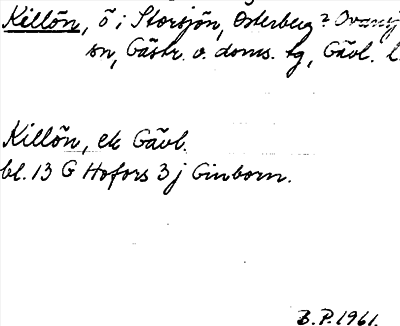 Killön, ö i Storsjön, Österberg o Ovansj
sn, Gästr. o. doms. tg, Gävl. l.
Killön, ek Gävl.
bl. 13 G Hofors 3 j Ginborn.
B.P. 1961.